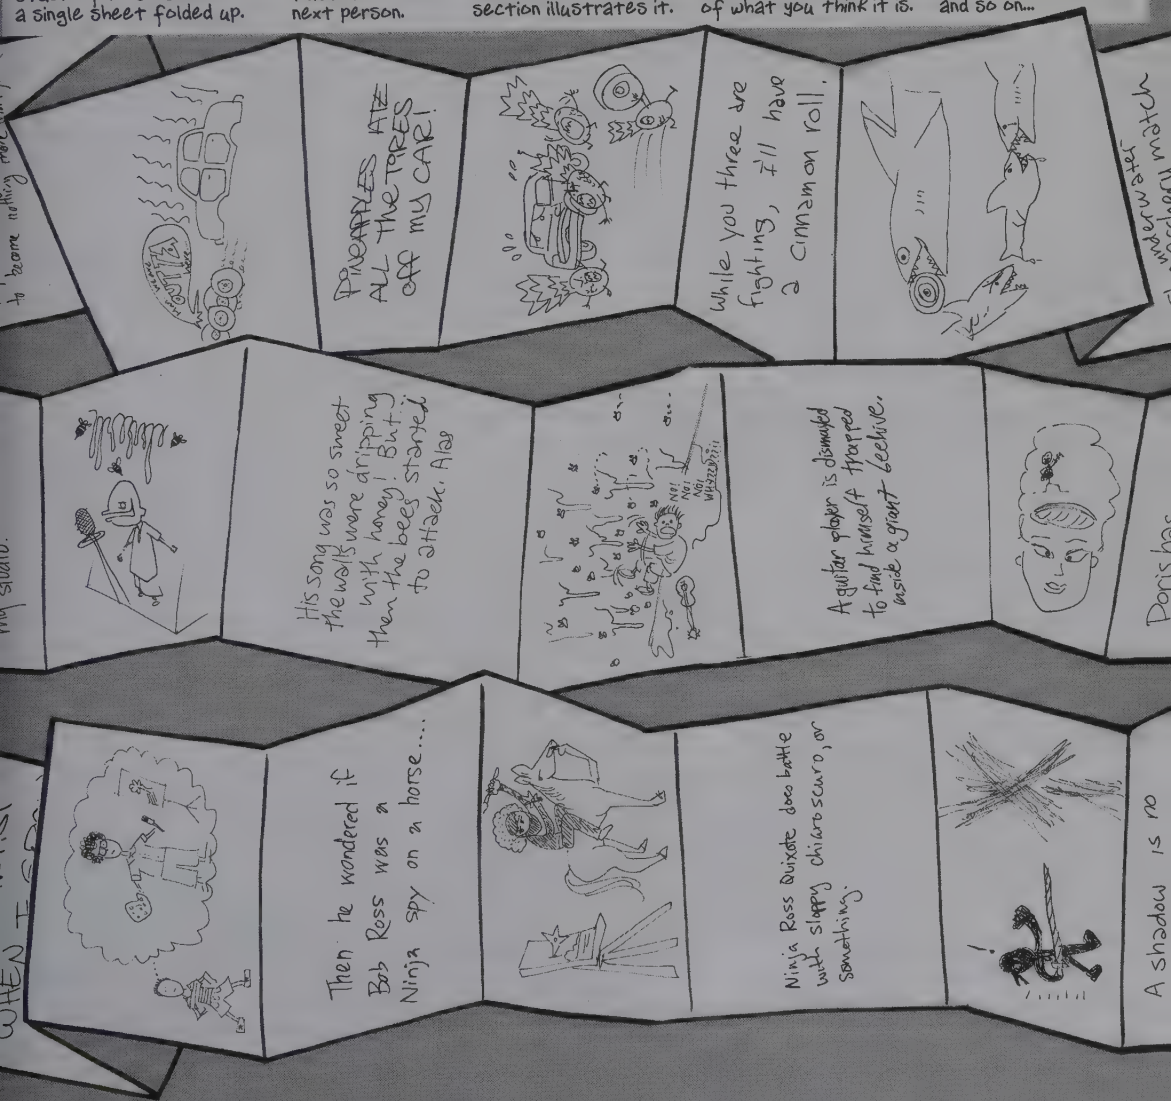 a single sheet folded up.
next person.
section illustrates it.
of what you think it is.
and so on...
to become nothing more
PINEAPPLES ATE
ALL THE TIRES
OFF MY CAR!
While you three are
fighting, I'll have
a cinnamon roll.
underwater
match
my studio.
His song was so sweet
the walls were dripping
with honey! But
then the bees started
to attack. Alas
NO!
NO!
NO!
A guitar player is dismayed
to find himself trapped
inside a giant beehive.
Doris has
WHEN I
Then he wondered if
Bob Ross was a
Ninja spy on a horse....
Ninja Ross Quixote does battle
with sloppy chiaroscuro, or
something.
!
A shadow is no